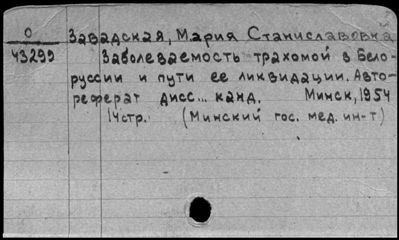 О
43299
Завадская, Мария Станиславовна
Заболеваемость трахомой в Бело-
руссии и пути ее ликвидации. Авто-
реферат дисс... канд. Минск, 1954
14стр. (Минский гос. мед. ин-т)